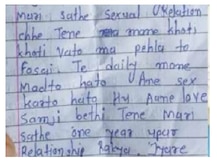 mari sathe sexual relation
chhe Tene mane khoti
khoti vato ma pehla to
fosai. Te daily mane
Malto hato Ane sex
karto hato. Hu Aane love
Samji bethi Tene Mari
sathe one year upar
Relationship Rakhya. Jyare